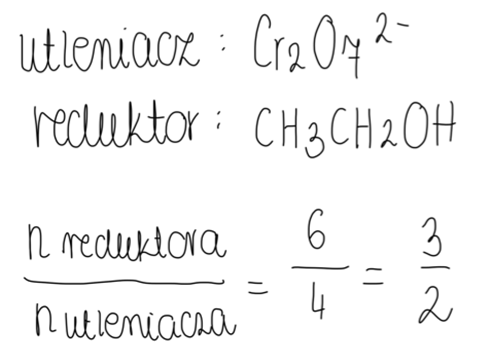 utleniacz : Cr₂O₇²⁻
reduktor : CH₃CH₂OH
n reduktora / n utleniacza = 6/4 = 3/2